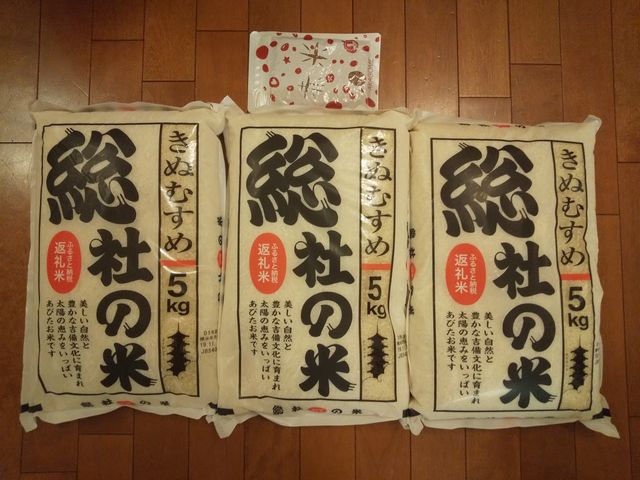 米
総社の米
きぬむすめ
5kg
ふるさと納税
返礼米
美しい自然と
豊かな吉備文化に育まれ
太陽の恵みをいっぱい
あびたお米です。
総社の米
総社の米
きぬむすめ
5kg
ふるさと納税
返礼米
美しい自然と
豊かな吉備文化に育まれ
太陽の恵みをいっぱい
あびたお米です。
総社の米
総社の米
きぬむすめ
5kg
ふるさと納税
返礼米
美しい自然と
豊かな吉備文化に育まれ
太陽の恵みをいっぱい
あびたお米です。
総社の米